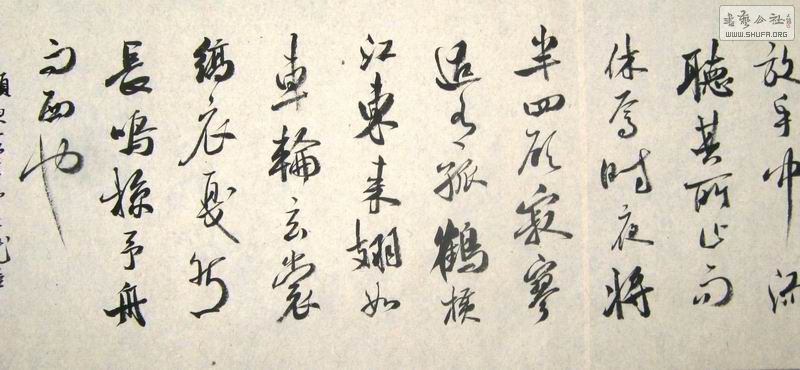 放乎中流
聽其所止而
休焉時夜將
半四顧寂寥
適有孤鶴橫
江東來翅如
車輪玄裳
縞衣戛然
長鳴掠予舟
而西也
書藝公社
WWW.SHUFA.ORG